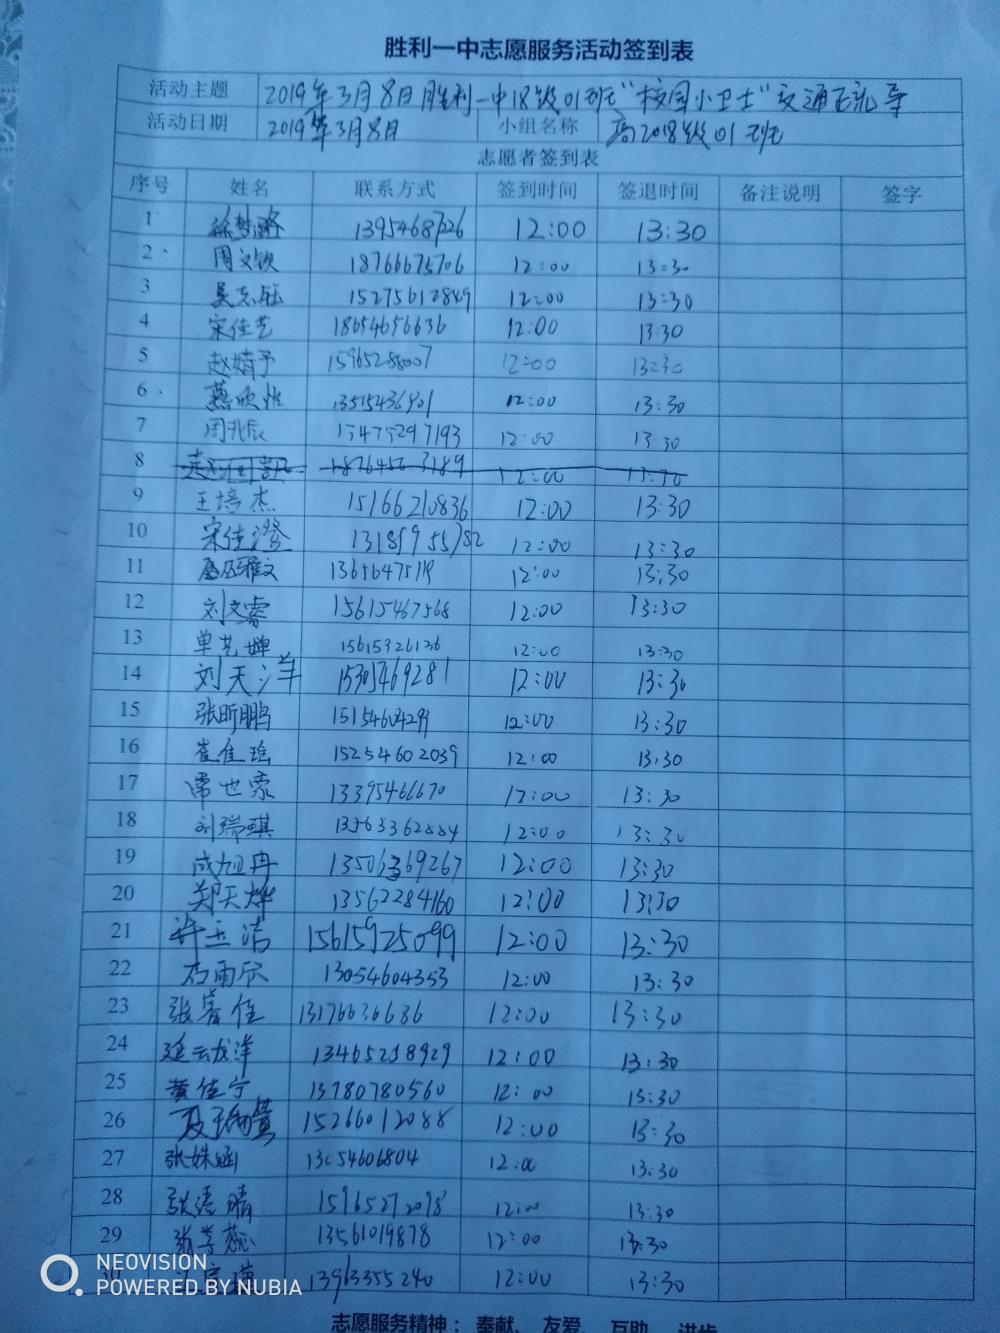 胜利一中志愿服务活动签到表
活动主题 2019年3月8日胜利一中18级01班"校园小卫士"交通
活动日期 2019年3月8日 小组名称 高2018级01班
志愿者签到表
序号 姓名 联系方式 签到时间 签退时间 备注说明 签字
1 徐梦璐 12:00 13:30
2 周文钦 18766675706 12:00 13:30
3 吴志钰 15275612849 12:00 13:30
4 宋佳艺 18654656636 12:00 13:30
5 赵婧予 15965288007 12:00 13:30
6 燕欣怡 13515436901 12:00 13:30
7 周孔辰 15475297193 12:00 13:30
8 12:00 13:30
9 王培杰 15166210836 12:00 13:30
10 宋佳澄 12:00 13:30
11 12:00 13:30
12 刘文睿 15615467568 12:00 13:30
13 单艺婵 15615326136 12:00 13:30
14 刘天洋 12:00 13:30
15 张昕鹏 12:00 13:30
16 崔佳瑶 15254602039 12:00 13:30
17 常世豪 13395466670 12:00 13:30
18 刘瑞琪 13563362884 12:00 13:30
19 成旭冉 12:00 13:30
20 郑天烨 13562284160 12:00 13:30
21 许玉洁 15615925099 12:00 13:30
22 雨欣 13054604353 12:00 13:30
23 张睿佳 13176636686 12:00 13:30
24 延云龙洋 13465218929 12:00 13:30
25 黄佳宁 13780780560 12:00 13:30
26 15266012088 12:00 13:30
27 张姝涵 13054606804 12:00 13:30
28 15965272098 12:00 13:30
29 张学蕊 13561019878 12:00 13:30
30 13963355240 12:00 13:30
NEOVISION
POWERED BY NUBIA
志愿服务精神：奉献、友爱、互助、进步